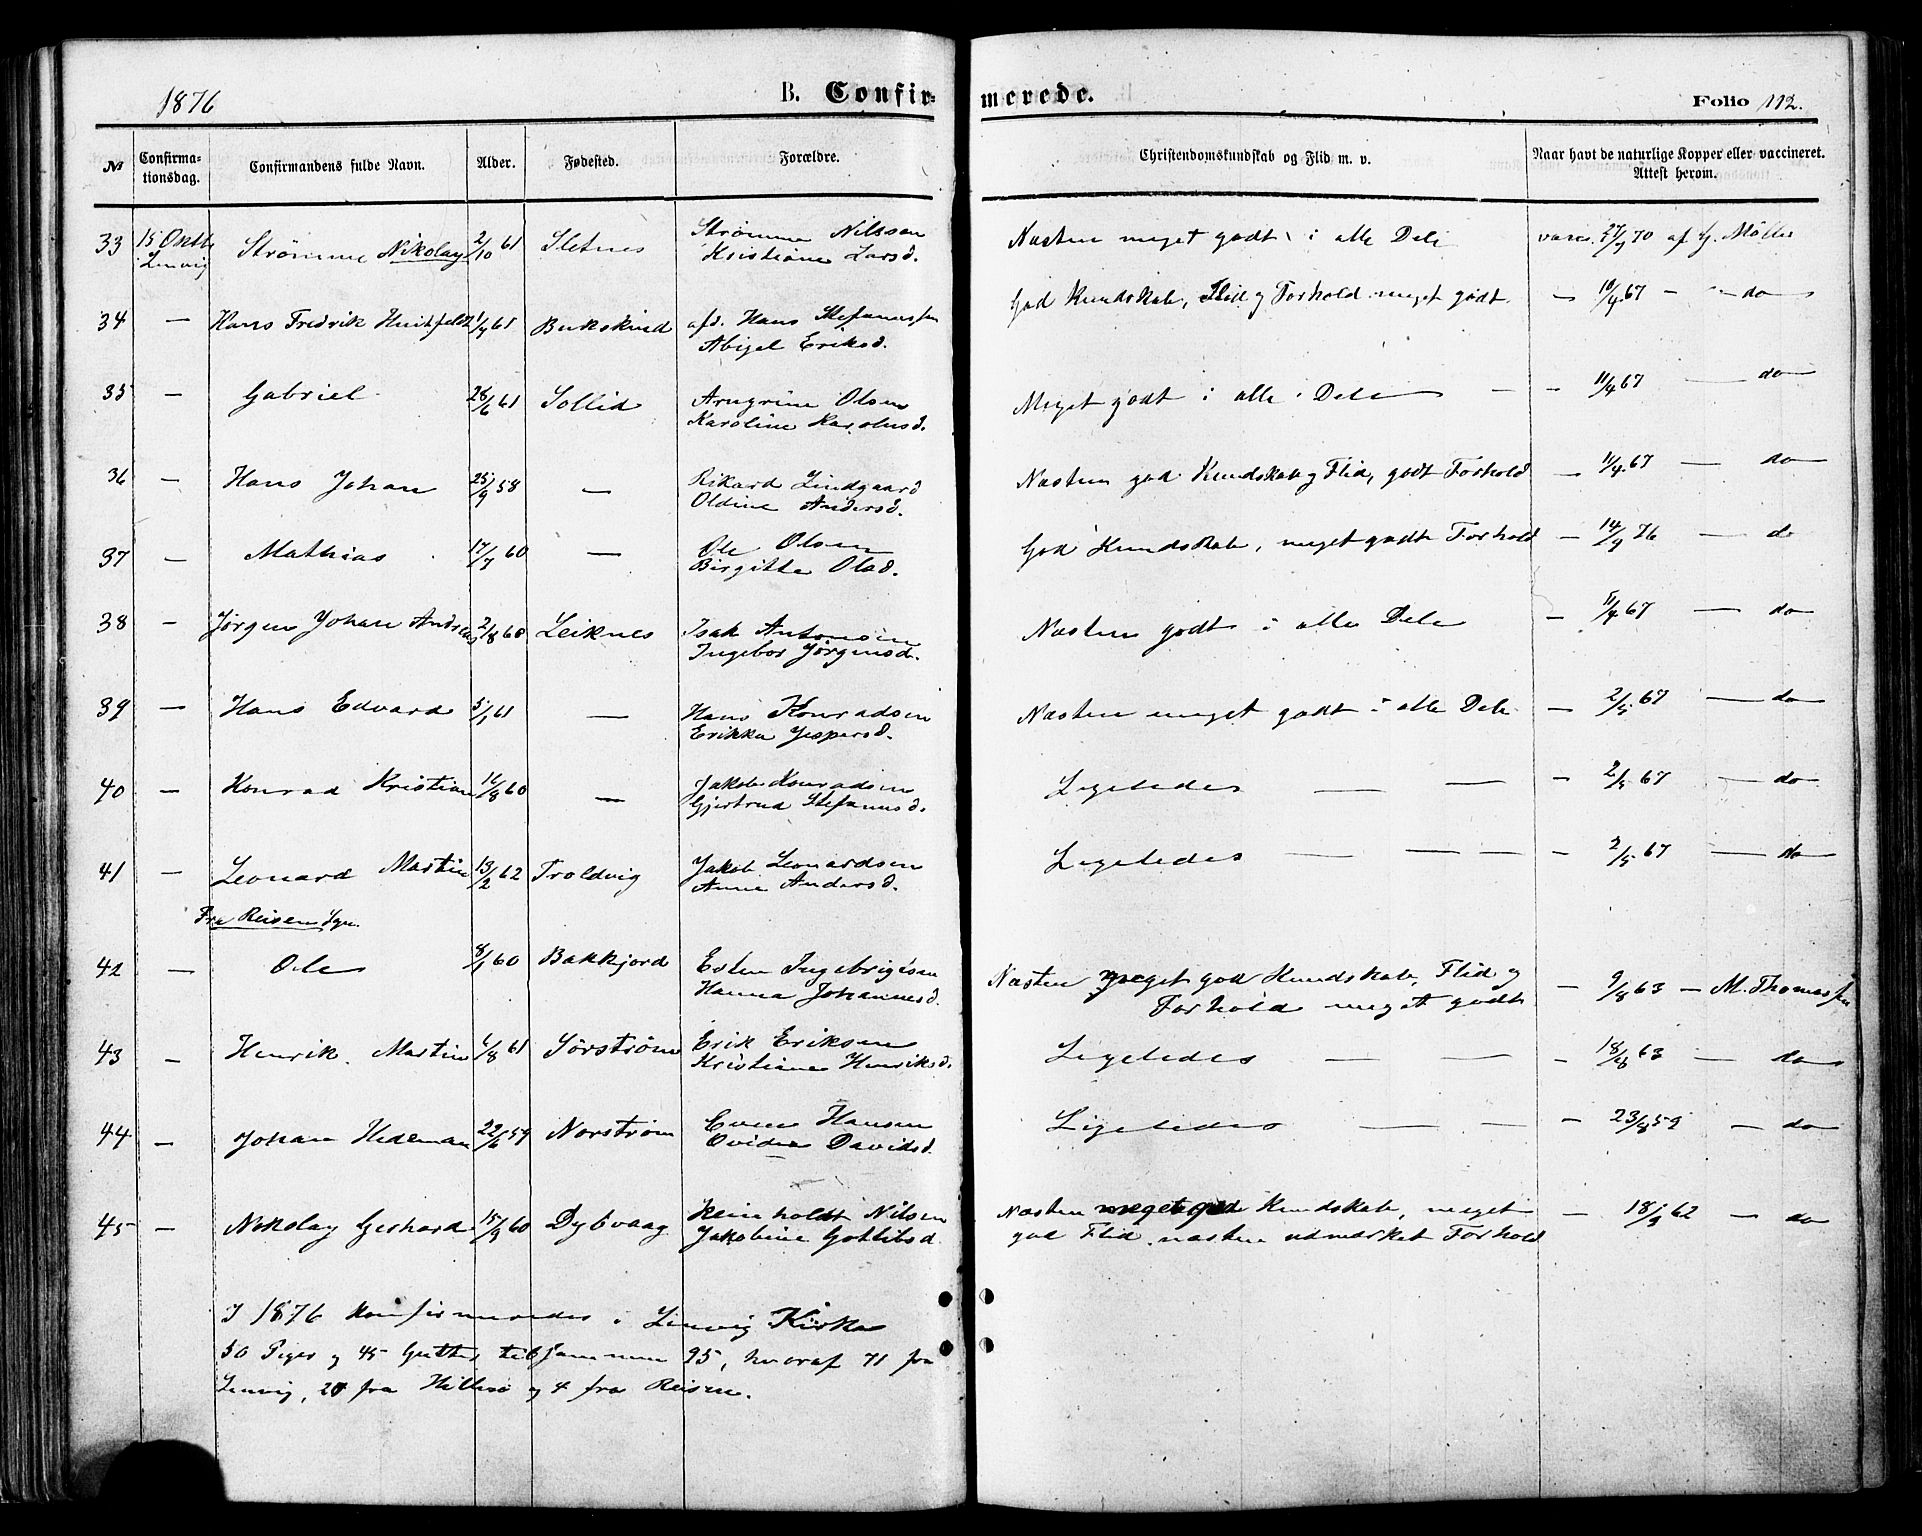 1876
B. Confirmerede.
Folio 112.
№ Confirmationsdag. Confirmandens fulde Navn. Alder. Fødested. Forældre. Christendomskundskab og Flid m. v. Naar havt de naturlige Kopper eller vaccineret. Attest herom.
33 15 Lenvig Strømme Nikolay 2/10 61 Sletnes Strømme Nilsson Næsten meget godt i alle Dele vacc. 27/9 70 af G. Møller
Kristiane Larsd.
34 — Hans Fredrik Huitfeldt 1/9 61 Bukskind afd. Hans Stefanussen God Kundskab, Flid og Forhold meget godt — 10/4 67 — do
Abigel Eriksd.
35 — Gabriel 28/6 61 Sollid Arngrim Olsen Meget godt i alle Dele — — 11/4 67 — do
Karoline Karolusd.
36 — Hans Johan 25/9 58 — Rikard Lindgaard Næsten god Kundskab og Flid, godt Forhold — 11/4 67 — do
Oldine Andersd.
37 — Mathias 17/7 60 — Ole Olsen God Kundskab, meget godt Forhold — 14/9 76 — do
Birgitte Olsd.
38 — Jørgen Johan Andreas 2/8 60 Leiknes Isak Antonsen Næsten godt i alle Dele — 11/4 67 — do
Ingebor Jørgensd.
39 — Hans Edvard 5/1 61 — Hans Konradsen Næsten meget godt i alle Dele — 2/5 67 — do
Erikka Jespersd.
40 — Konrad Kristian 16/8 60 — Jakob Konradsen Ligeledes — — — 2/5 67 — do
Gjertrud Stefanusd.
41 — Leonard Martin 13/2 62 Troldvig Jakob Leonardsen Ligeledes — — — — 2/5 67 — do
Anne Andersd.
Fra Reisen Sgn.
42 — Ole 8/1 60 Bakkjord Esten Ingebrigtsen Næsten meget god Kundskab, Flid og — 9/8 63 — M. Thomassen
Hanna Johannesd. Forhold meget godt
43 — Henrik Martin 6/8 61 Sørstrøm Erik Eriksen Ligeledes — — — 18/8 63 — do
Kristiane Henriksd.
44 — Johan Hedeman 22/6 59 Norstrøm Even Hansen Ligeledes — — — 23/8 59 — do
Ovidia Davidsd.
45 — Nikolay Gerhard 15/9 60 Dybvaag Reinholdt Nilsen Næsten meget god Kundskab, meget — 18/9 62 — do
Jakobine Gottlibsd. god Flid, næsten udmærket Forhold
I 1876 konfirmeredes i Lenvig Kirke
50 Piger og 45 Gutter tilsammen 95, hvoraf 71 fra
Lenvig, 20 fra Hillesø og 4 fra Reisen.